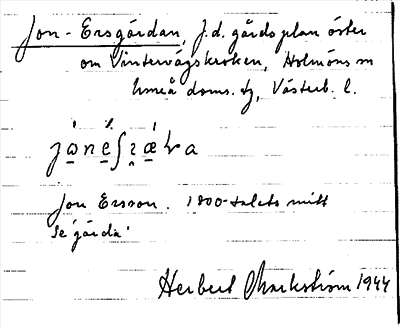 Jon-Ersgårdan, f.d. gårdsplan öster
om Vintervägskroken, Holmöns sn
Umeå doms. tg, Västerb. l.
Jon Ersson. 1800-talets mitt
Se 'gårda'
Herbert Markström 1944